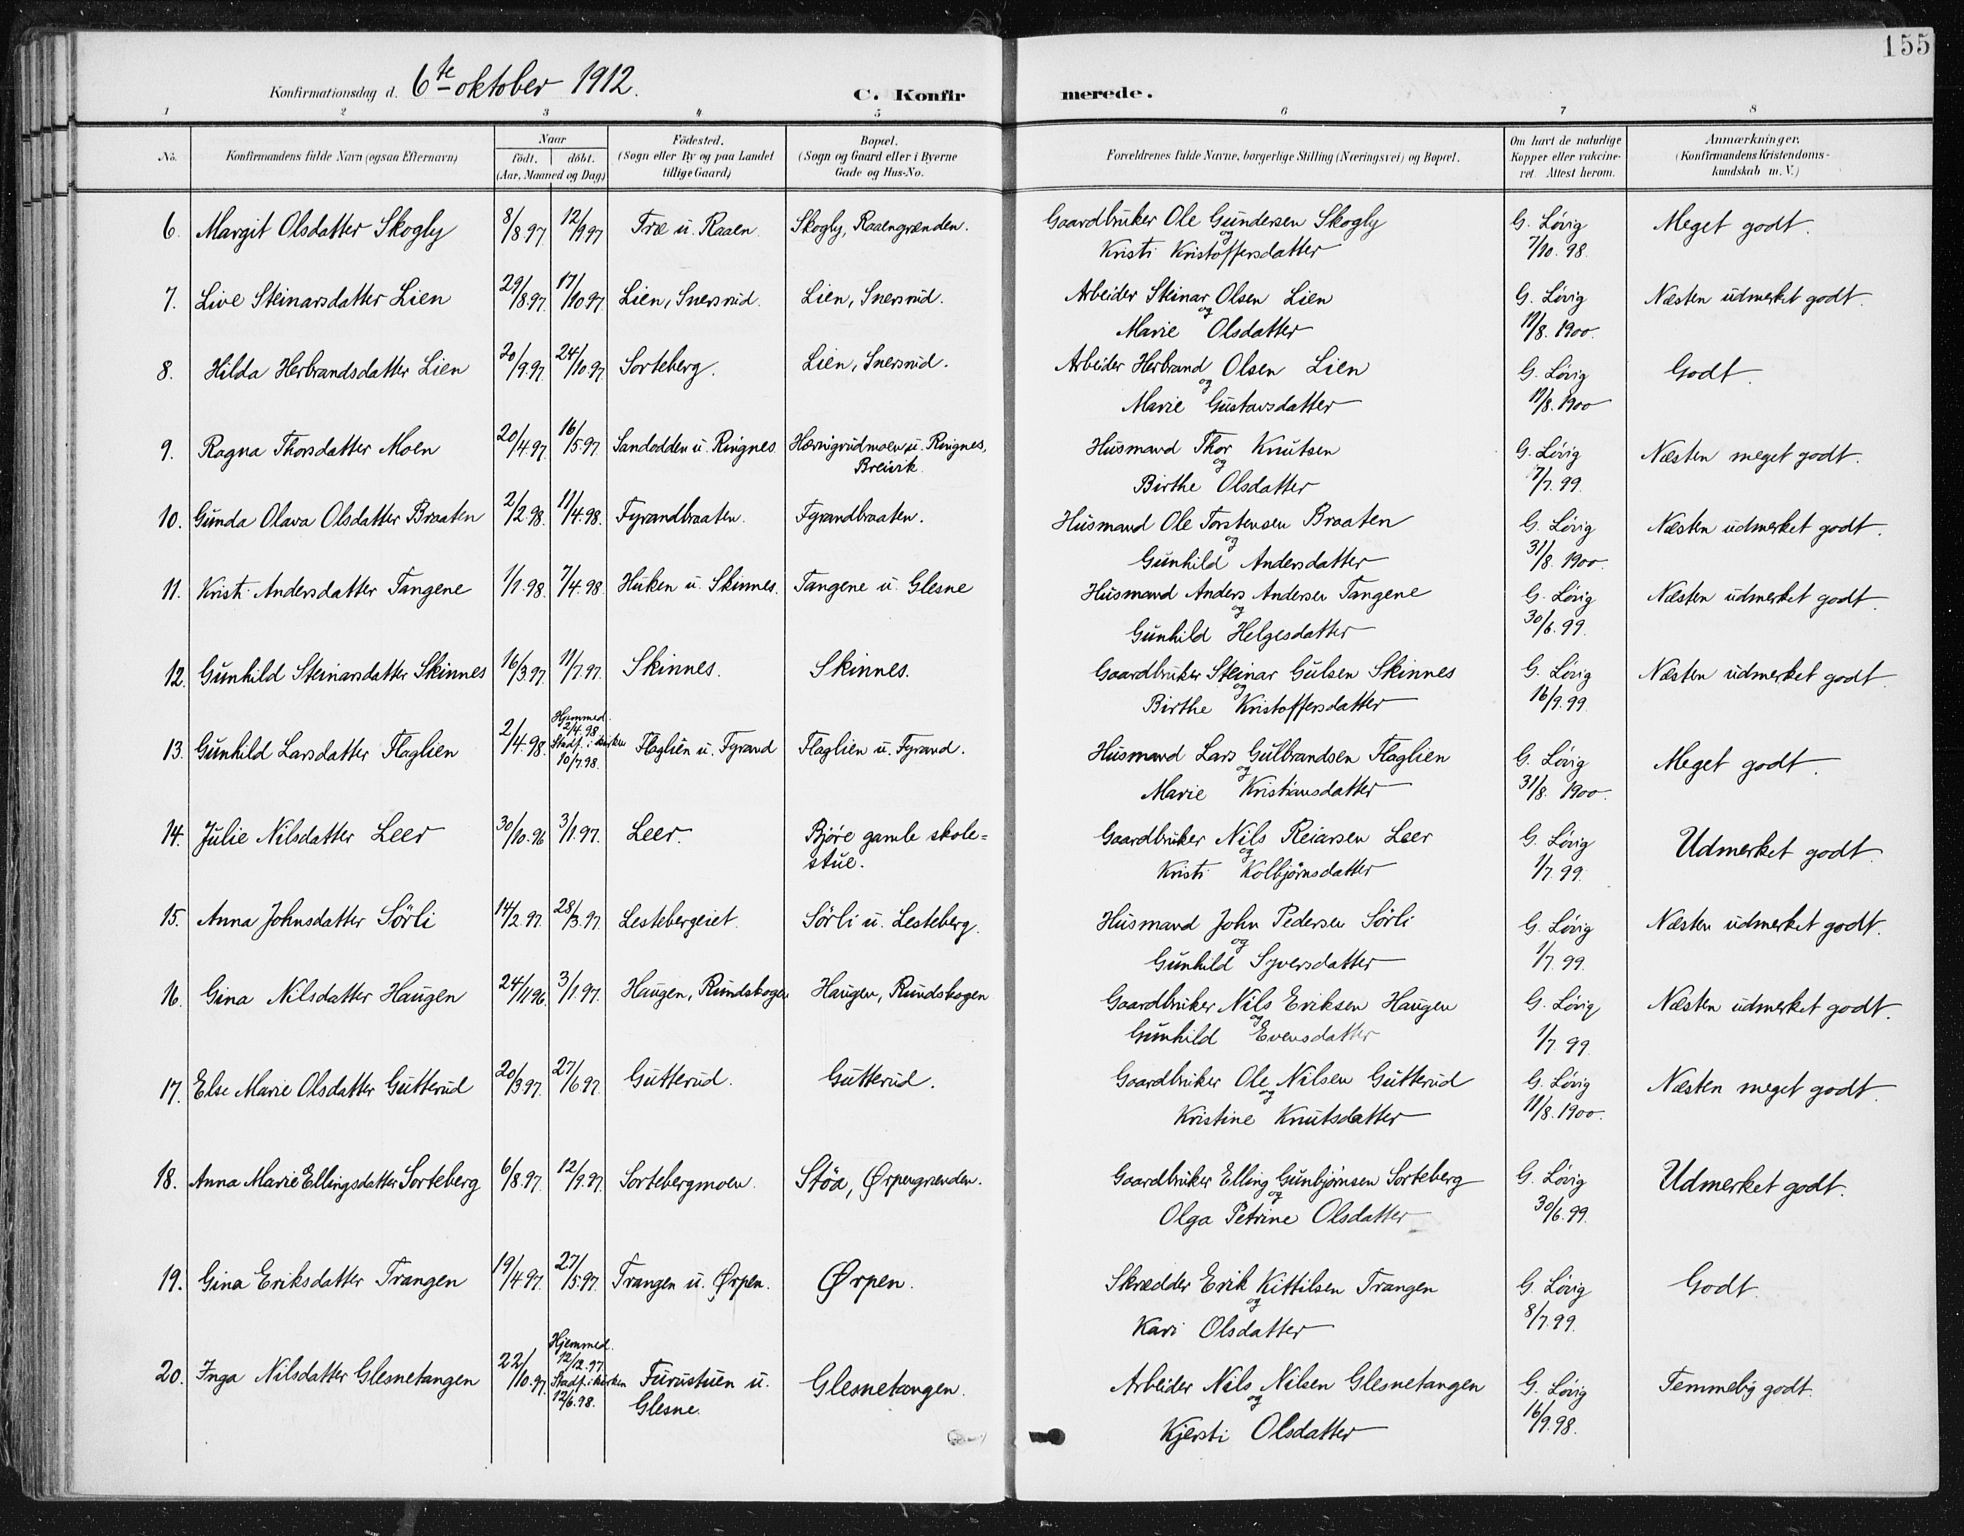 155
Konfirmationsdag d. 6te oktober 1912.
C. Konfirmerede.
1 2 3 4 5 6 7 8
No.
Konfirmandens fulde Navn (ogsaa Efternavn)
Naar
födt. döbt.
(Aar, Maaned og Dag)
Födested.
(Sogn eller By og paa Landet
tillige Gaard)
Bopæl.
(Sogn og Gaard eller i Byerne
Gade og Hus-No.
Forældrenes fulde Navne, borgerlige Stilling (Næringsvei) og Bopæl.
Om havt de naturlige
Kopper eller vakcine-
ret. Attest herom.
Anmærkninger.
(Konfirmandens Kristendoms-
kundskab m. V.)
6. Margit Olsdatter Skogly 8/8 97 12/9 97 Træ u. Raaen. Skogly, Raaengrænden. Gaardbruker Ole Gundersen Skogly G. Løvig Meget godt.
og
Kristi Kristoffersdatter 7/10. 98.
7. Live Steinarsdatter Lien 29/8.97. 17/10.97. Lien, Snersrud. Lien, Snersrud. Arbeider Steinar Olsen Lien G. Løvig Næsten udmerket godt.
og
Marie Olsdatter 17/8. 1900.
8. Hilda Herbrandsdatter Lien 20/9.97. 24/10.97. Sorteberg. Lien, Snersrud. Arbeider Herbrand Olsen Lien G. Løvig Godt.
og
Marie Gustavsdatter 17/8. 1900
9. Ragna Thorsdatter Moen 20/4.97. 16/5.97. Sandodden u. Ringnes Hærnigrudmoen u. Ringnes, Husmand Thor Knutsen G. Løvig Næsten meget godt.
Breivik. og
Birthe Olsdatter 7/7. 99.
10. Gunda Olava Olsdatter Braaten 2/2.98. 11/4.98. Fyrandbraaten. Fyrandbraaten. Husmand Ole Torstensen Braaten G. Løvig Næsten udmerket godt.
og
Gunhild Andersdatter 31/8. 1900.
11. Kristi Andersdatter Tangene 1/1.98. 7/4.98. Huken u. Skinnes. Tangene u. Glesne Husmand Anders Andersen Tangene G. Løvig Næsten udmerket godt.
og
Gunhild Helgesdatter 30/6. 99.
12. Gunhild Steinarsdatter Skinnes 16/3.97. 11/7.97. Skinnes. Skinnes. Gaardbruker Steinar Gulsen Skinnes G. Løvig Næsten udmerket godt.
og
Birthe Kristoffersdatter 16/9. 99.
13. Gunhild Larsdatter Flaglien 2/4.98. Hjemmed. 2/4.98 Stadf. i kirken 10/7.98. Flaglien u. Fyrand Flaglien u. Fyrand. Husmand Lars Gulbrandsen Flaglien G. Løvig Meget godt.
og
Marie Kristiansdatter 31/8. 1900.
14. Julie Nilsdatter Leer 30/10.96 3/1.97. Leer. Bjøre gamle skole= Gaardbruker Nils Reiarsen Leer G. Løvig Udmerket godt.
stue. og
Kristi Kolbjørnsdatter 1/7. 99.
15. Anna Johnsdatter Sörli 14/2.97. 28/3.97. Lestebergeiet. Sörli u. Lesteberg. Husmand John Pedersen Sörli G. Løvig Næsten udmerket godt.
og
Gunhild Syversdatter 1/7. 99.
16. Gina Nilsdatter Haugen 24/11 96. 3/1.97. Haugen, Rundskogen Haugen, Rundskogen Gaardbruker Nils Eriksen Haugen G. Løvig Næsten udmerket godt.
og
Gunhild Evensdatter 1/7. 99.
17. Else Marie Olsdatter Gutterud 20/3 97. 27/6 97. Gutterud. Gutterud. Gaardbruker Ole Nilsen Gutterud G. Løvig Næsten meget godt.
og
Kristine Knutsdatter 11/8. 1900.
18. Anna Marie Ellingsdatter Sorteberg 6/8.97. 12/9.97. Sortebergmoen. Stöa, Ørpengrænden. Gaardbruker Elling Gunbjørnsen Sorteberg G. Løvig Udmerket godt.
og
Olga Petrine Olsdatter 30/6.99.
19. Gina Eriksdatter Trangen 19/4.97. 27/5.97. Trangen u. Ørpen. Ørpen. Skrædder Erik Kittilsen Trangen G. Løvig Godt.
og
Kari Olsdatter 8/7.99.
20. Inga Nilsdatter Glesnetangen 22/10.97. Hjemmed. 12/12.97. Stadf. i kirken 12/6.98. Furustuen u. Glesnetangen. Arbeider Nils Nilsen Glesnetangen G. Løvig Temmelig godt.
Glesne. og
Kjersti Olsdatter 16/9.98.